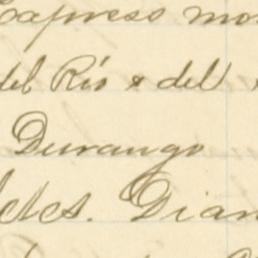 Express mo
del Río & del
Durango
Dian